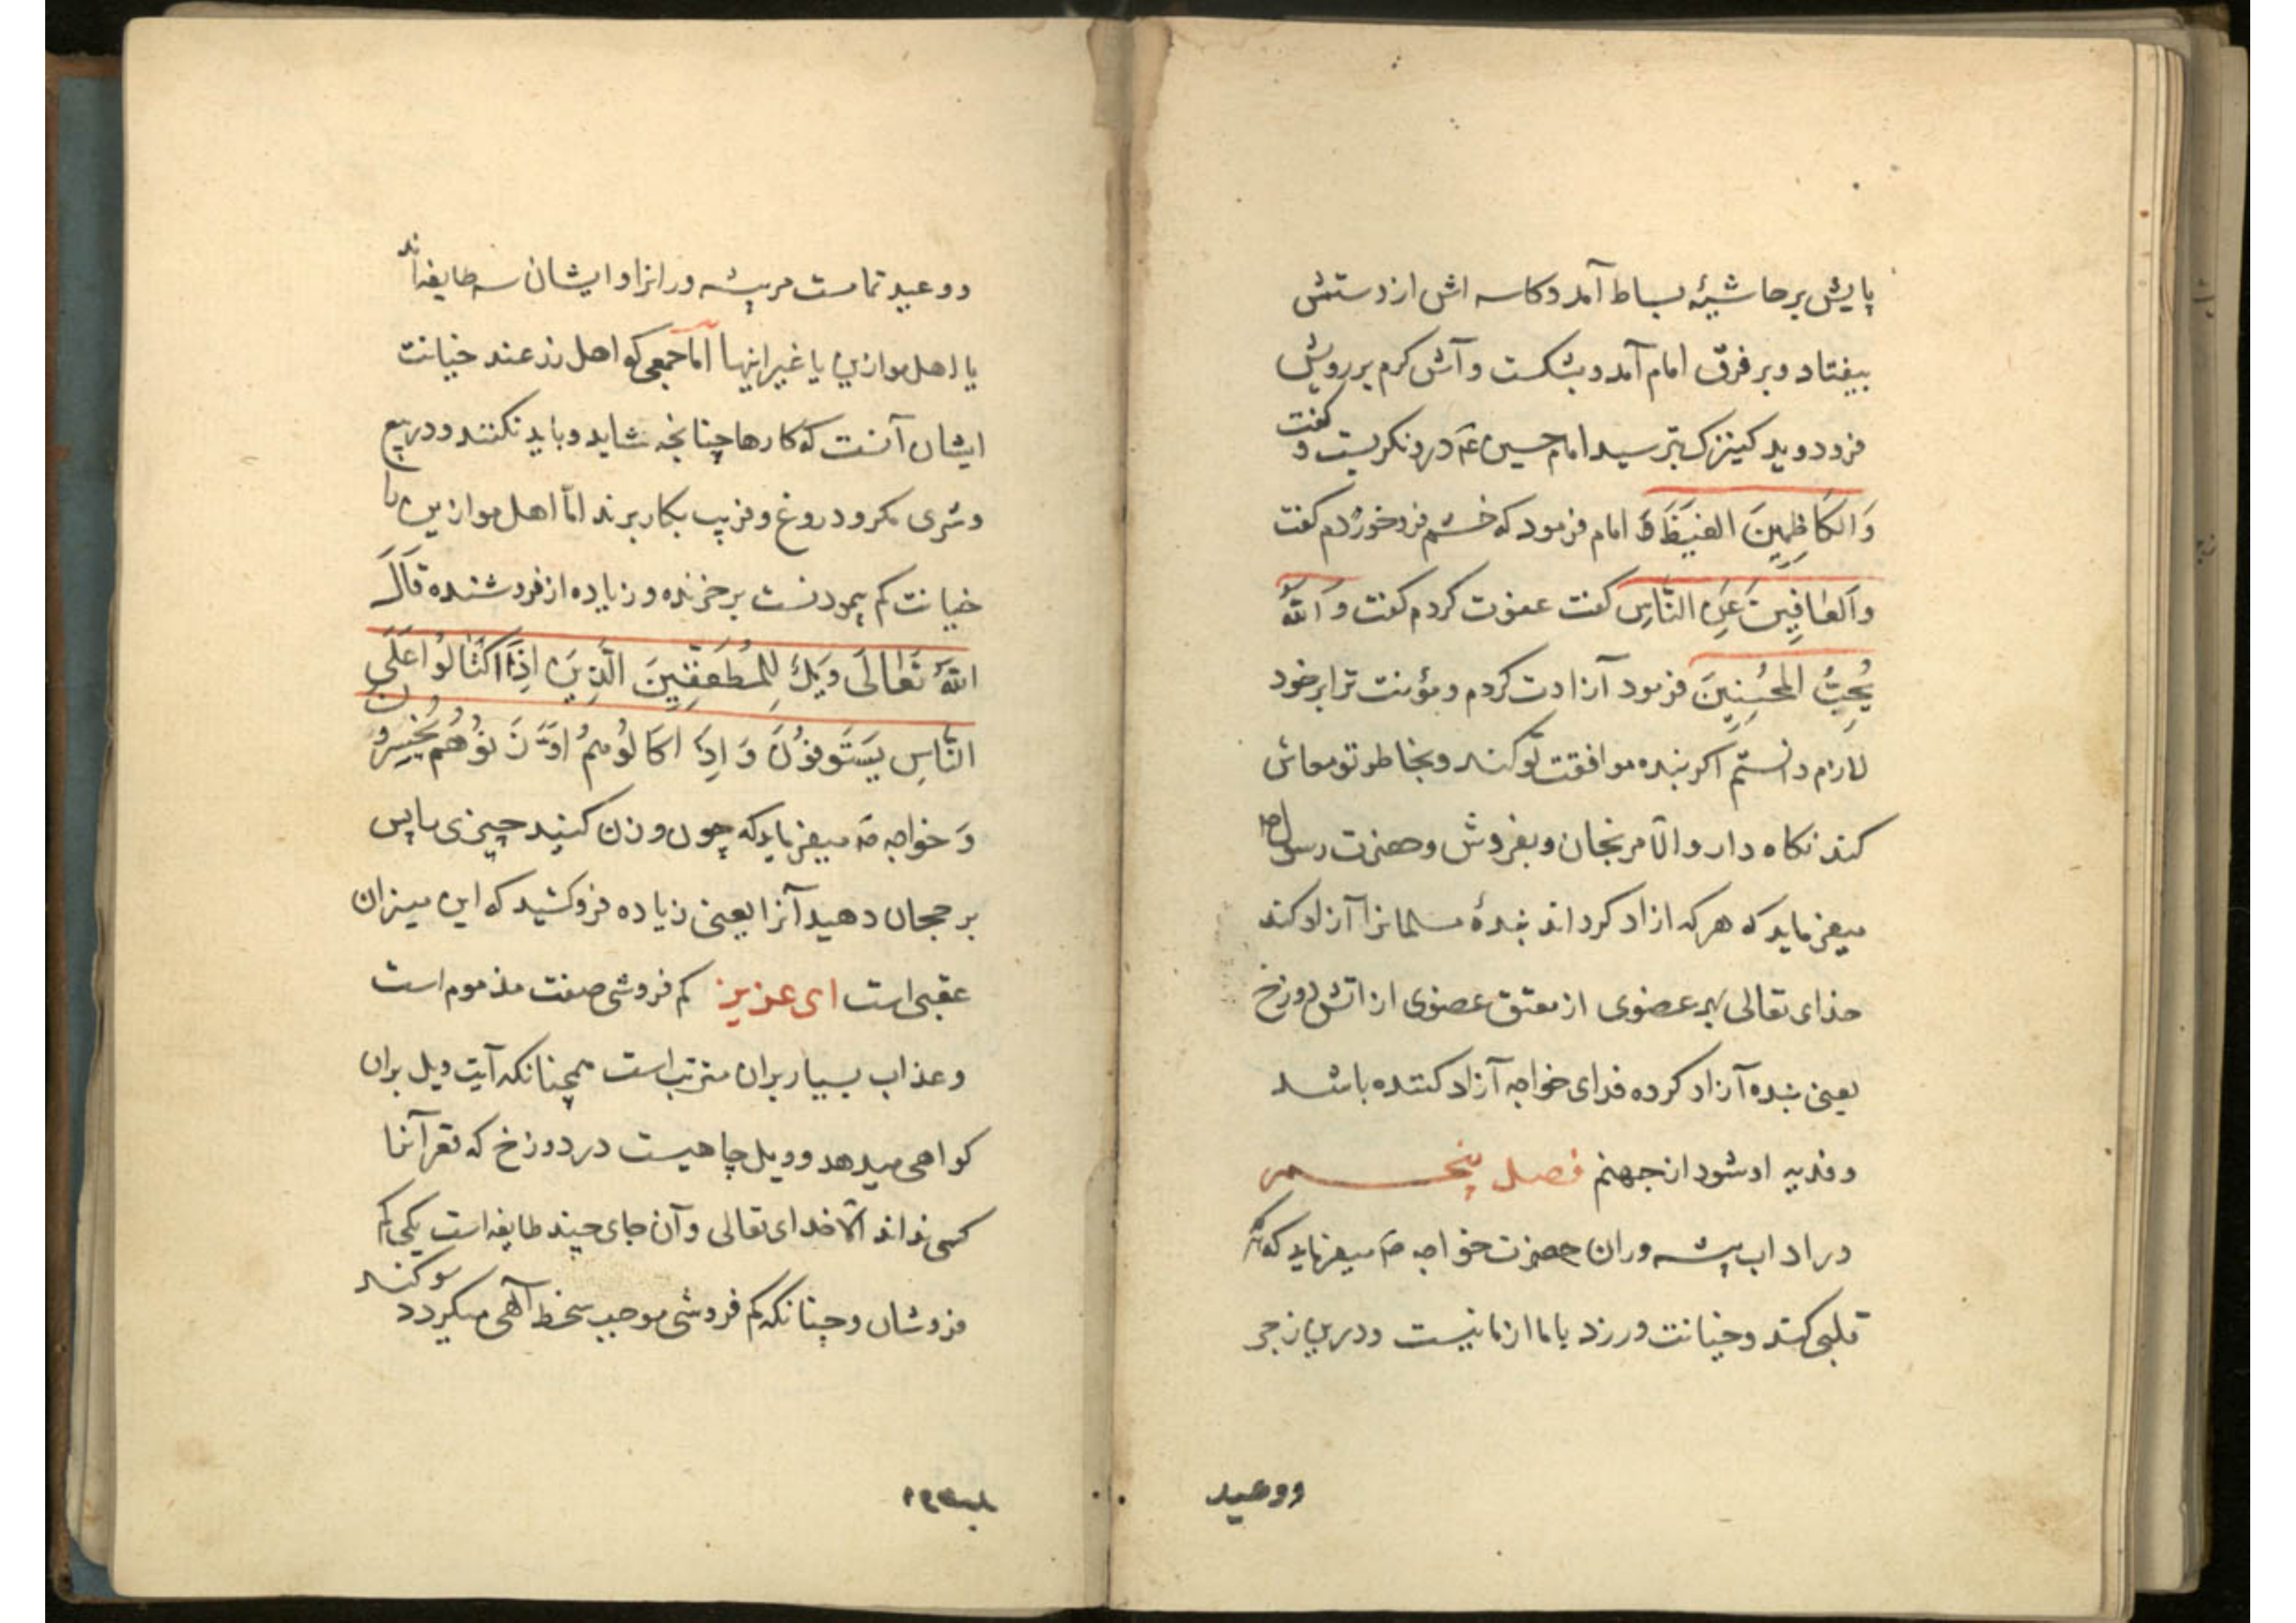 پایش بر حاشیهٔ بساط آمد و کاسه اش از دستش
بیفتاد و بر فرق امام آمد و بشکست و آش کرم بر رویش
فرو دوید کنیزک بترسید امام حسین ع در و نکریست و کفت
وَالکَاظِمِینَ الغَیظَ امام فرمود که خشم فرو خوردم کفت
وَالعَافِینَ عَنِ النَّاسِ کفت عفوت کردم کفت وَاللّٰهُ
یُحِبُّ المُحسِنِینَ فرمود آزادت کردم و مؤنت ترا بر خود
لازم دانستم اکر بنده موافقت تو کند و بخاطر تو معاش
کند نکاه دار و الّا مرنجان و بفروش و حضرت رسول ص
میفرماید که هر که ازاد کرداند بندهٔ مسلمانرا آزاد کند
خدای تعالی بهر عضوی از معتق عضوی از اتش دوزخ
یعنی بنده آزاد کرده فدای خواجه آزاد کننده باشد
و فدیه او شود از جهنم فصل پنجم
در اداب پیشه وران حضرت خواجه ص میفرماید که هر که
قلبی کند و خیانت ورزد با ما از ما نیست و درین زجر
ووعید
و وعید تمامست مر پیشه ورانرا و ایشان سه طایفه اند
یا اهل موازین یا غیر اینها اما جمعی که اهل خیانت
ایشان آنست که کارها چنانچه شاید و باید نکنند و در بیع
و شری مکر و دروغ و فریب بکار برند امّا اهل موازین با
خیانت کم پیمودنست بر خرنده و زیاده از فروشنده قَالَ
اللّٰهُ تَعَالَی وَیلٌ لِلمُطَفِّفِینَ الَّذِینَ اِذَا اکتَالُوا عَلَی
النَّاسِ یَستَوفُونَ وَاِذَا کَالُوهُم اَو وَزَنُوهُم یُخسِرُونَ
وَ خواجه ص میفرماید که چون وزن کنید چیزی با پس
بر حجان دهید آنرا یعنی زیاده فرو کشید که این میزان
عقبی است ای عزیز کم فروشی صفت مذموم است
و عذاب بسیار بران مترتب است همچنانکه آیت ویل بران
کواهی میدهد و ویل چاهیست در دوزخ که قعر آنرا
کسی نداند الّا خدای تعالی و آن جای چند طایفه است یکی کم
فروشان و چنانکه کم فروشی موجب سخط آلهی میکردد سوکند